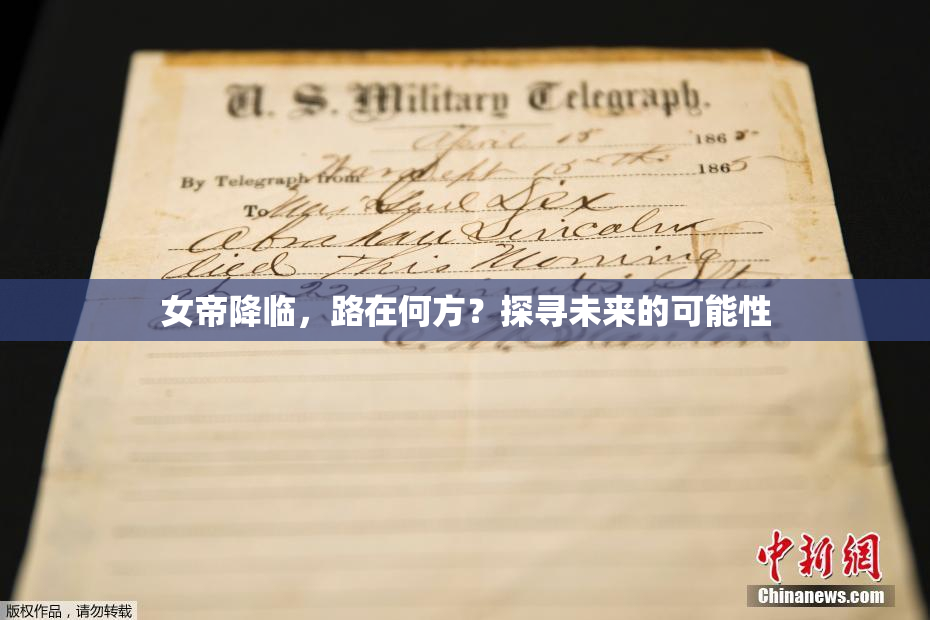 U. S. Military Telegraph.
April 15 1865
By Telegraph from War Dept 15th 1865
To Maj Genl Dix
Abraham Lincoln
died This Morning
at 22 minutes after
女帝降临，路在何方？探寻未来的可能性
E. M. Stanton
中新网
Chinanews.com
版权作品，请勿转载